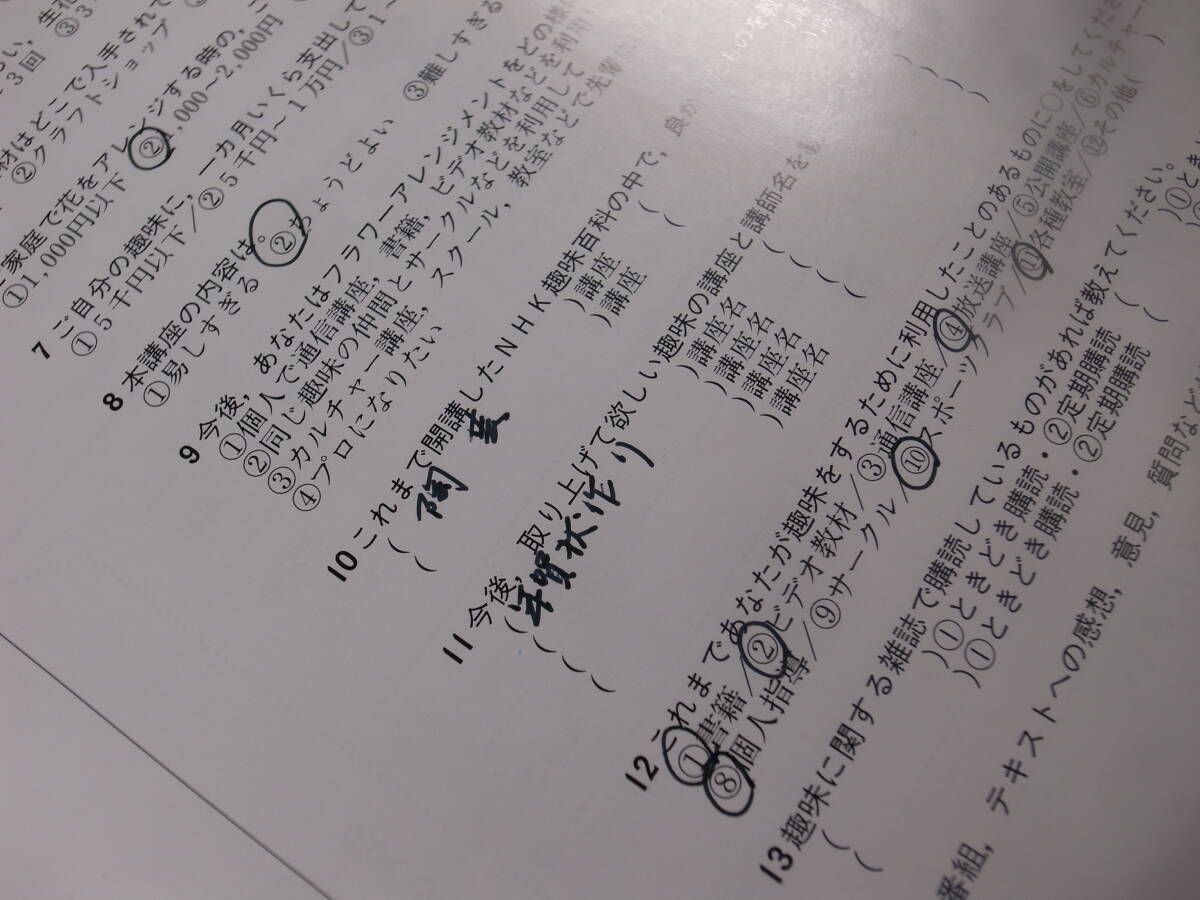 材はどこで入手されて
②クラフトショップ
家庭で花をアレンジする時の,
①1,000円以下 ②1,000〜2,000円
7 ご自分の趣味に,一カ月いくら支出して
①5千円以下/②5千円〜1万円/③1〜
8 本講座の内容は,
①易しすぎる ②ちょうどよい ③難しすぎる
9 今後,あなたはフラワーアレンジメントをどの様に
①個人で通信講座,書籍,ビデオ教材などを利用
②同じ趣味の仲間とサークルなどを利用して
③カルチャー講座,スクール,教室などで先輩
④プロになりたい
10 これまで開講したNHK趣味百科の中で,良か
(陶芸 )講座 (
( )講座 (
11 今後,取り上げて欲しい趣味の講座と講師名を
(年賀状作り )講座名 (
( )講座名 (
( )講座名 (
( )講座名 (
12 これまであなたが趣味をするために利用したことのあるものに○をしてくださ
①書籍/②ビデオ教材/③通信講座/④放送講座/⑤公開講座/⑥カルチャー
⑧個人指導/⑨サークル/⑩スポーツクラブ/⑪各種教室/⑫その他( )
13 趣味に関する雑誌で購読しているものがあれば教えてください。
( )①ときどき購読・②定期購読 ( )①とき
( )①ときどき購読・②定期購読 (
番組,テキストへの感想,意見,質問など